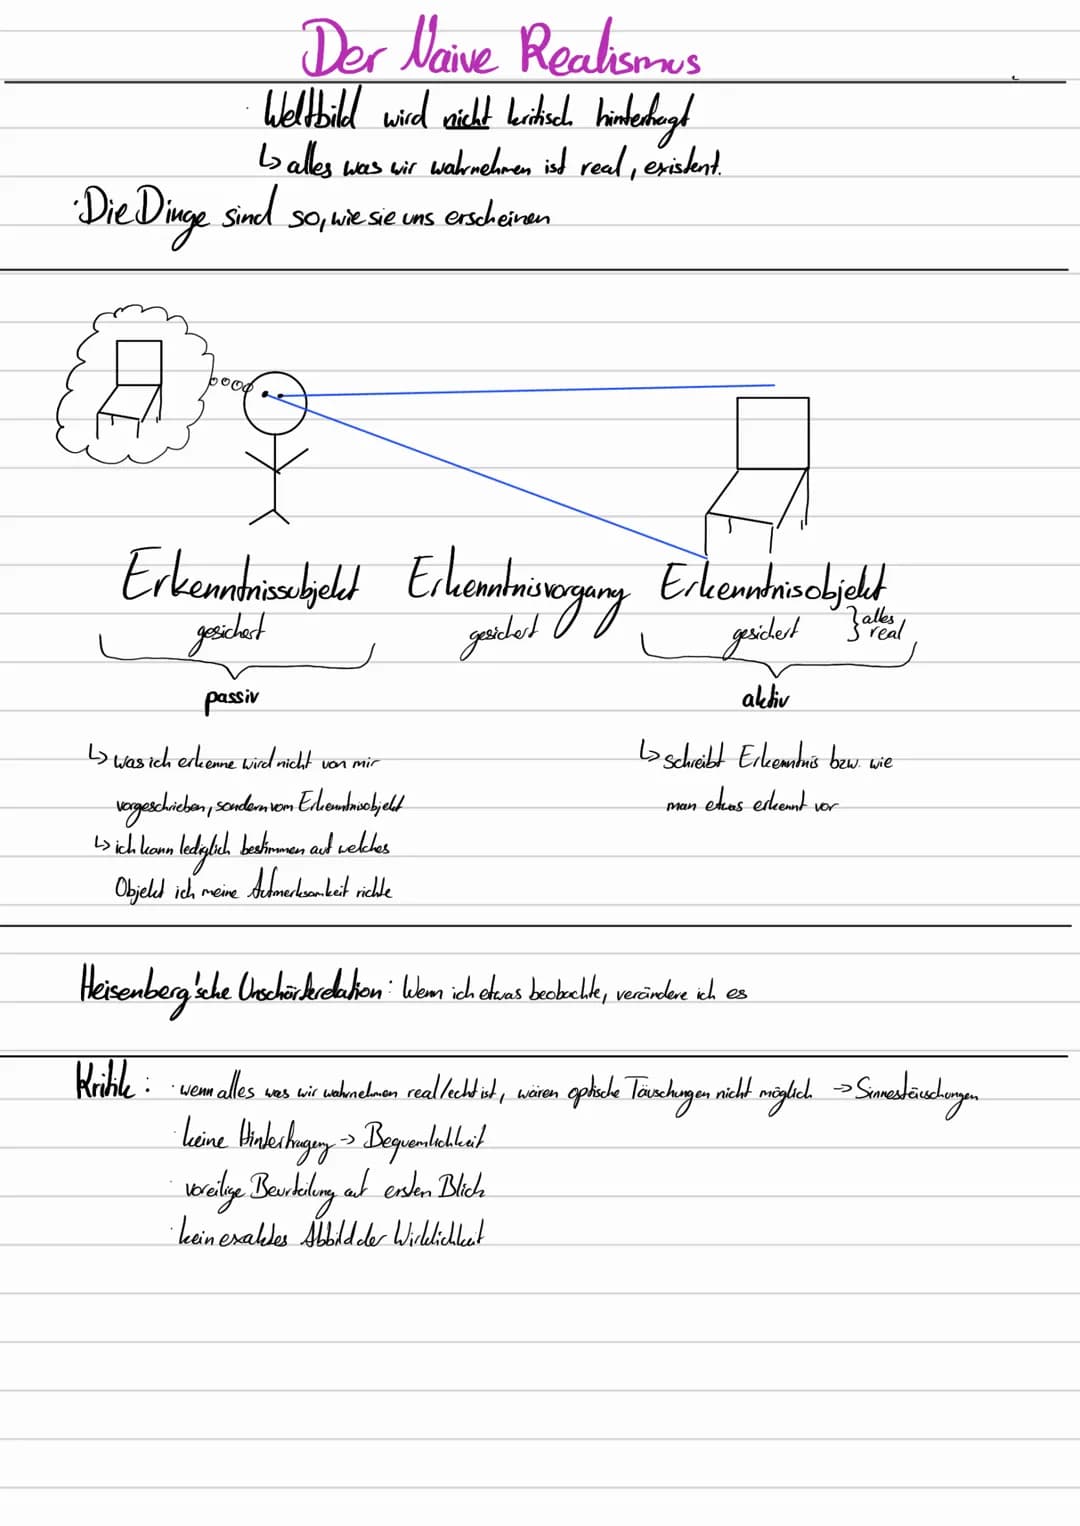 Der Naive Realismus
· Weltbild wird nicht kritisch hinterfragt
↳ alles was wir wahrnehmen ist real, existent.
· Die Dinge sind so, wie sie uns erscheinen
Erkenntnissubjekt Erkenntnisvorgang Erkenntnisobjekt
gesichert gesichert gesichert } alles real
passiv aktiv
↳ was ich erkenne wird nicht von mir
vorgeschrieben, sondern vom Erkenntnisobjekt
↳ ich kann lediglich bestimmen auf welches
Objekt ich meine Aufmerksamkeit richte
↳ schreibt Erkenntnis bzw. wie
man etwas erkennt vor
Heisenberg'sche Unschärferelation: Wenn ich etwas beobachte, verändere ich es
Kritik: · wenn alles was wir wahrnehmen real/echt ist, wären optische Täuschungen nicht möglich → Sinnestäuschungen
· keine Hinterfragung → Bequemlichkeit
· voreilige Beurteilung auf ersten Blick
· kein exaktes Abbild der Wirklichkeit